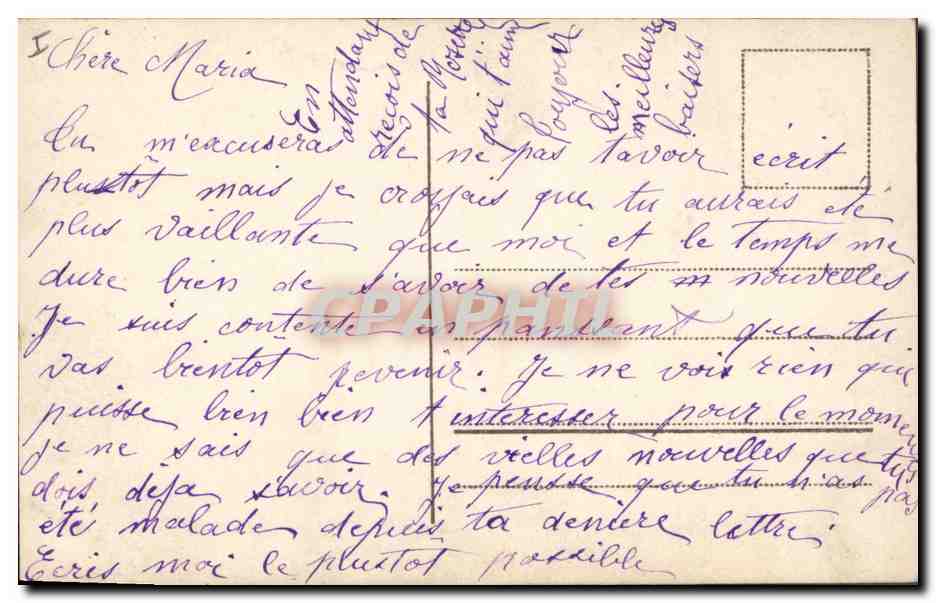 I
Chère Maria
Tu m'excuseras de ne pas tavoir écrit
plustôt mais je croyais que tu aurais été
plus vaillante que moi et le temps me
dure bien de s'avoir de tes nouvelles
Je suis contente en panssant que tu
vas bientôt revenir. Je ne vois rien qui
puisse bien bien t interesser pour le moment
je ne sais que des vielles nouvelles que tu
dois déja savoir. Je pensse que tu n'as pas
été malade depuis ta deniere lettre.
Ecris moi le plustôt possible
En
attendant
recois de
ta
qui t'aime
Toujour
les
meilleurs
baisers
CPAPHIL